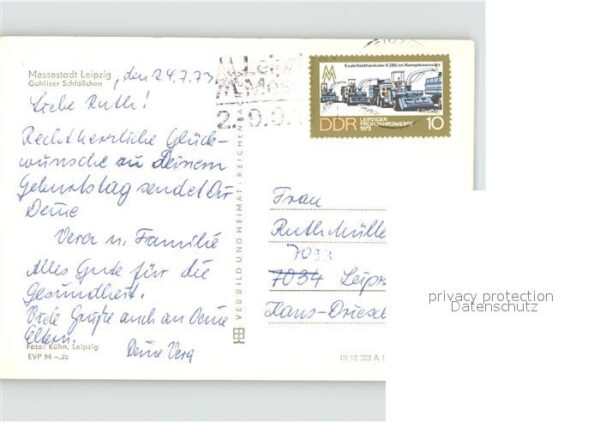 Messestadt Leipzig, den 24.7.73
Gohliser Schlößchen
Liebe Ruth!
Recht herzliche Glück-
wünsche zu Deinem
Geburtstag sendet Dir
Deine
Vera u. Familie
Alles Gute für die
Gesundheit.
Viele Grüße auch an Deine
Eltern.
Deine Vera
Foto: Kühn, Leipzig
EVP M -,20
VEB BILD UND HEIMAT · REICHENB
MM Leipzi
Mes
2.-9.9.
Exaktfeldhäcksler E 280 im Komplexeinsatz
MM
DDR
LEIPZIGER
HERBSTMESSE
1973
10
Frau
Ruth Mülle
7033
7034 Leipz
Hans-Driesch
III 18 203 A 1
privacy protection
Datenschutz